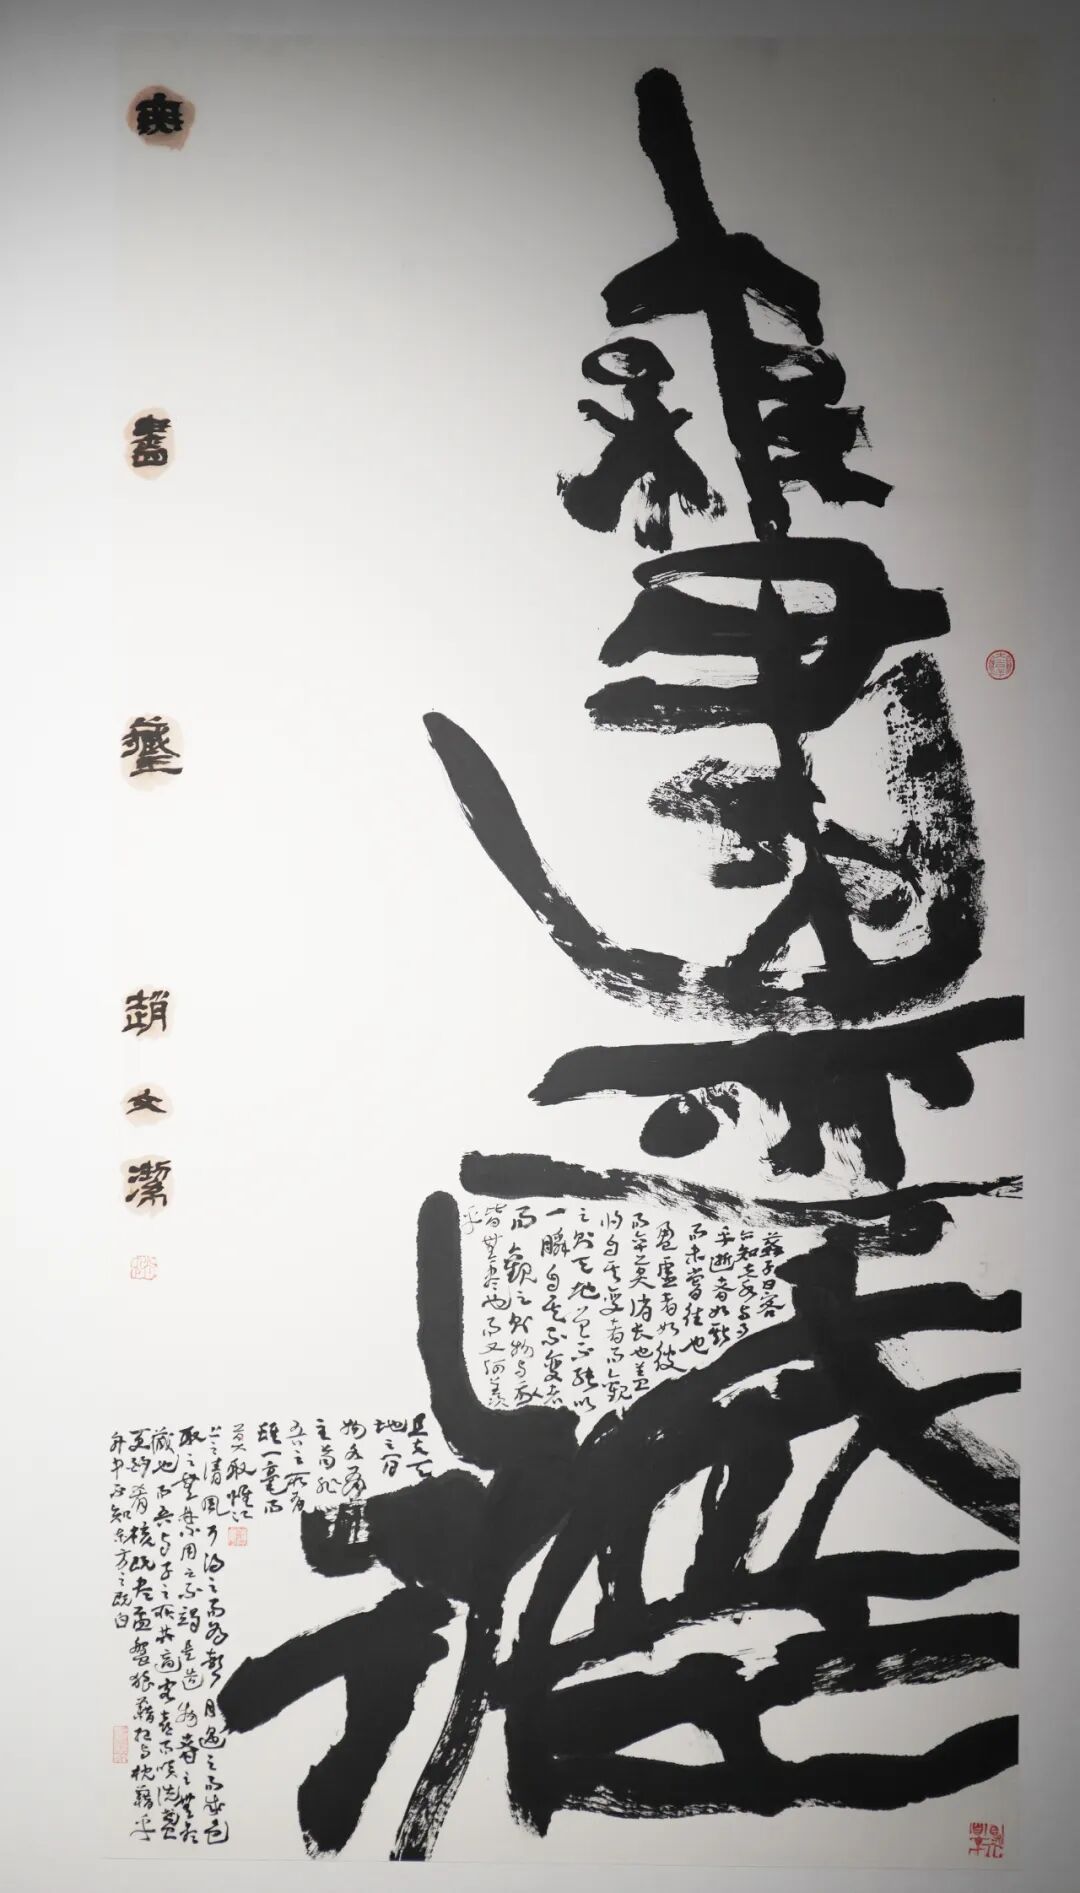 蘇子曰客
亦知夫水與月
乎逝者如斯
而未嘗往也
盈虛者如彼
而卒莫消長也蓋
將自其變者而觀
之則天地曾不能以
一瞬自其不變者
而觀之則物與我
皆無盡也而又何羨
乎
且夫天
地之間
物各有
主苟非
吾之所有
雖一毫而
莫取惟江
上之清風耳得之而為聲目遇之而成色
取之無禁用之不竭是造物者之無盡
藏也而吾與子之所共適客喜而笑洗盞
更酌肴核既盡盃盤狼藉相與枕藉乎
舟中不知東方之既白
無盡藏
趙文潔